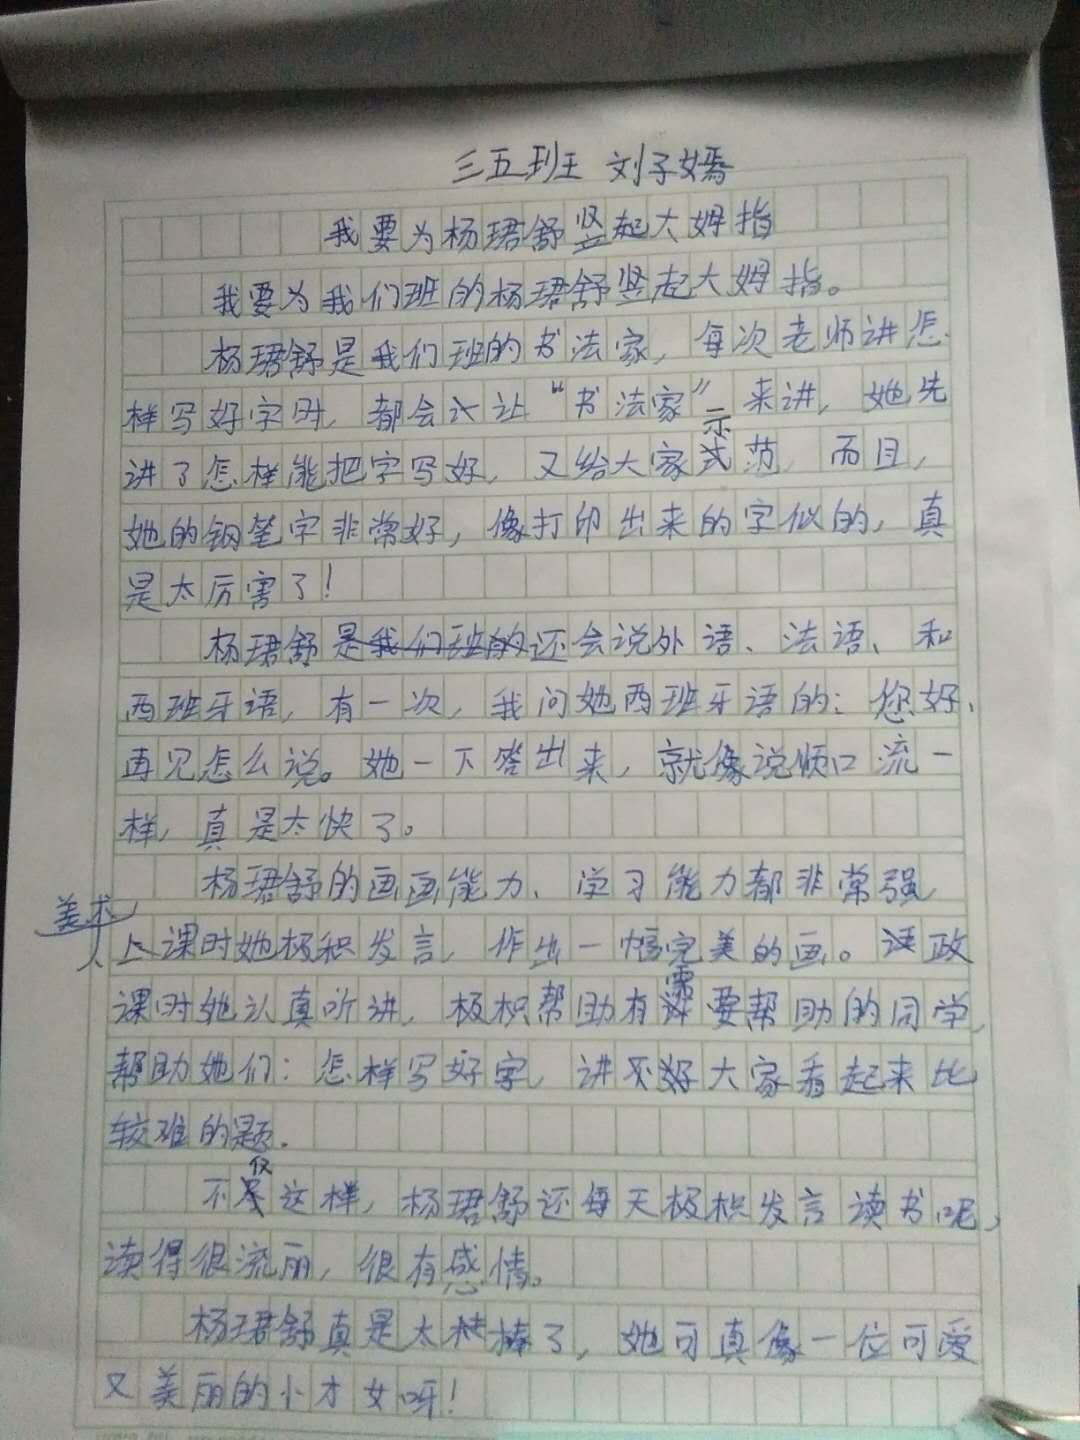 三五班 刘子嫣
我要为杨珺舒竖起大姆指
我要为我们班的杨珺舒竖起大姆指。
杨珺舒是我们班的书法家，每次老师讲怎
样写好字时，都会让“书法家”来讲，她先
讲了怎样能把字写好，又给大家示范，而且，
她的钢笔字非常好，像打印出来的字似的，真
是太厉害了！
杨珺舒是我们班的还会说外语、法语、和
西班牙语，有一次，我问她西班牙语的：您好、
再见怎么说。她一下答出来，就像说顺口流一
样，真是太快了。
杨珺舒的画画能力、学习能力都非常强
美术
上课时她极积发言，作出一幅完美的画。语政
课时她认真听讲，极积帮助有需要帮助的同学，
帮助她们：怎样写好字，讲大家看起来比
较难的题.
不仅这样，杨珺舒还每天极积发言读书呢，
读得很流丽，很有感情。
杨珺舒真是太棒了，她可真像一位可爱
又美丽的小才女呀！